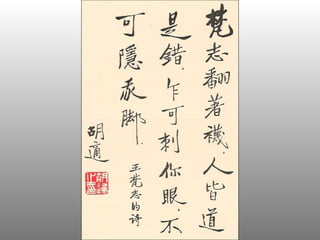 梵志翻著襪,人皆道
是錯.乍可刺你眼.不
可隱我脚.
王梵志的詩
胡適